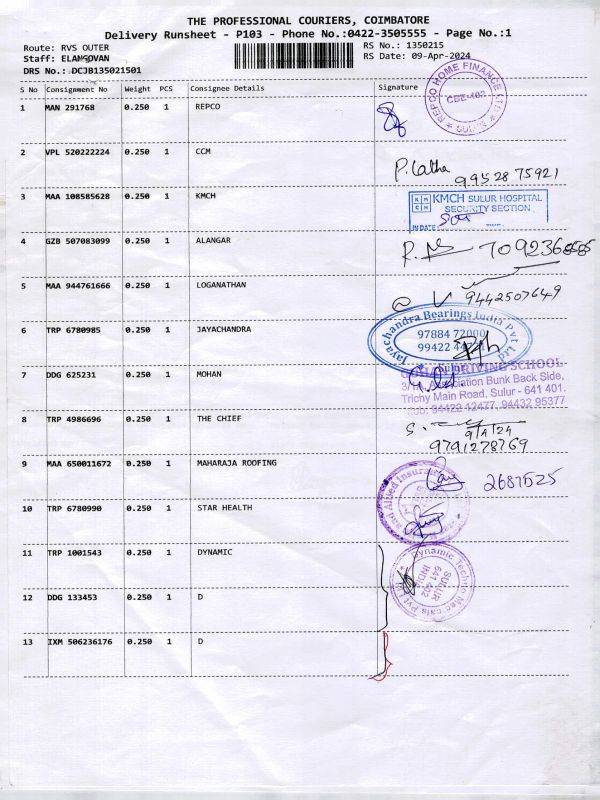 THE PROFESSIONAL COURIERS, COIMBATORE
Delivery Runsheet - P103 - Phone No.:0422-3505555 - Page No.:1
Route: RVS OUTER RS No.: 1350215
Staff: ELANGOVAN RS Date: 09-Apr-2024
DRS No.: DCJB135021501
S No Consignment No Weight PCS Consignee Details Signature
1 MAN 291768 0.250 1 REPCO
REPCO HOME FINANCE LTD CBE-402
2 VPL 520222224 0.250 1 CCM
P. Latha
9952875921
3 MAA 108585628 0.250 1 KMCH
KMCH SULUR HOSPITAL
SECURITY SECTION
4 GZB 507083099 0.250 1 ALANGAR
5 MAA 944761666 0.250 1 LOGANATHAN
9442507649
6 TRP 6780985 0.250 1 JAYACHANDRA
Jayachandra Bearings India Pvt Ltd
97884 72000
99422
7 DDG 625231 0.250 1 MOHAN
DRIVING SCHOOL
Association Bunk Back Side,
Trichy Main Road, Sulur - 641 401.
04422 12477, 94432 95377
8 TRP 4986696 0.250 1 THE CHIEF
9/4/24
9791278769
9 MAA 650011672 0.250 1 MAHARAJA ROOFING
2687525
10 TRP 6780990 0.250 1 STAR HEALTH
and Allied Insurance
11 TRP 1001543 0.250 1 DYNAMIC
Dynamic Techno Medicals Pvt Ltd
SULUR
641 402
12 DDG 133453 0.250 1 D
13 IXM 506236176 0.250 1 D